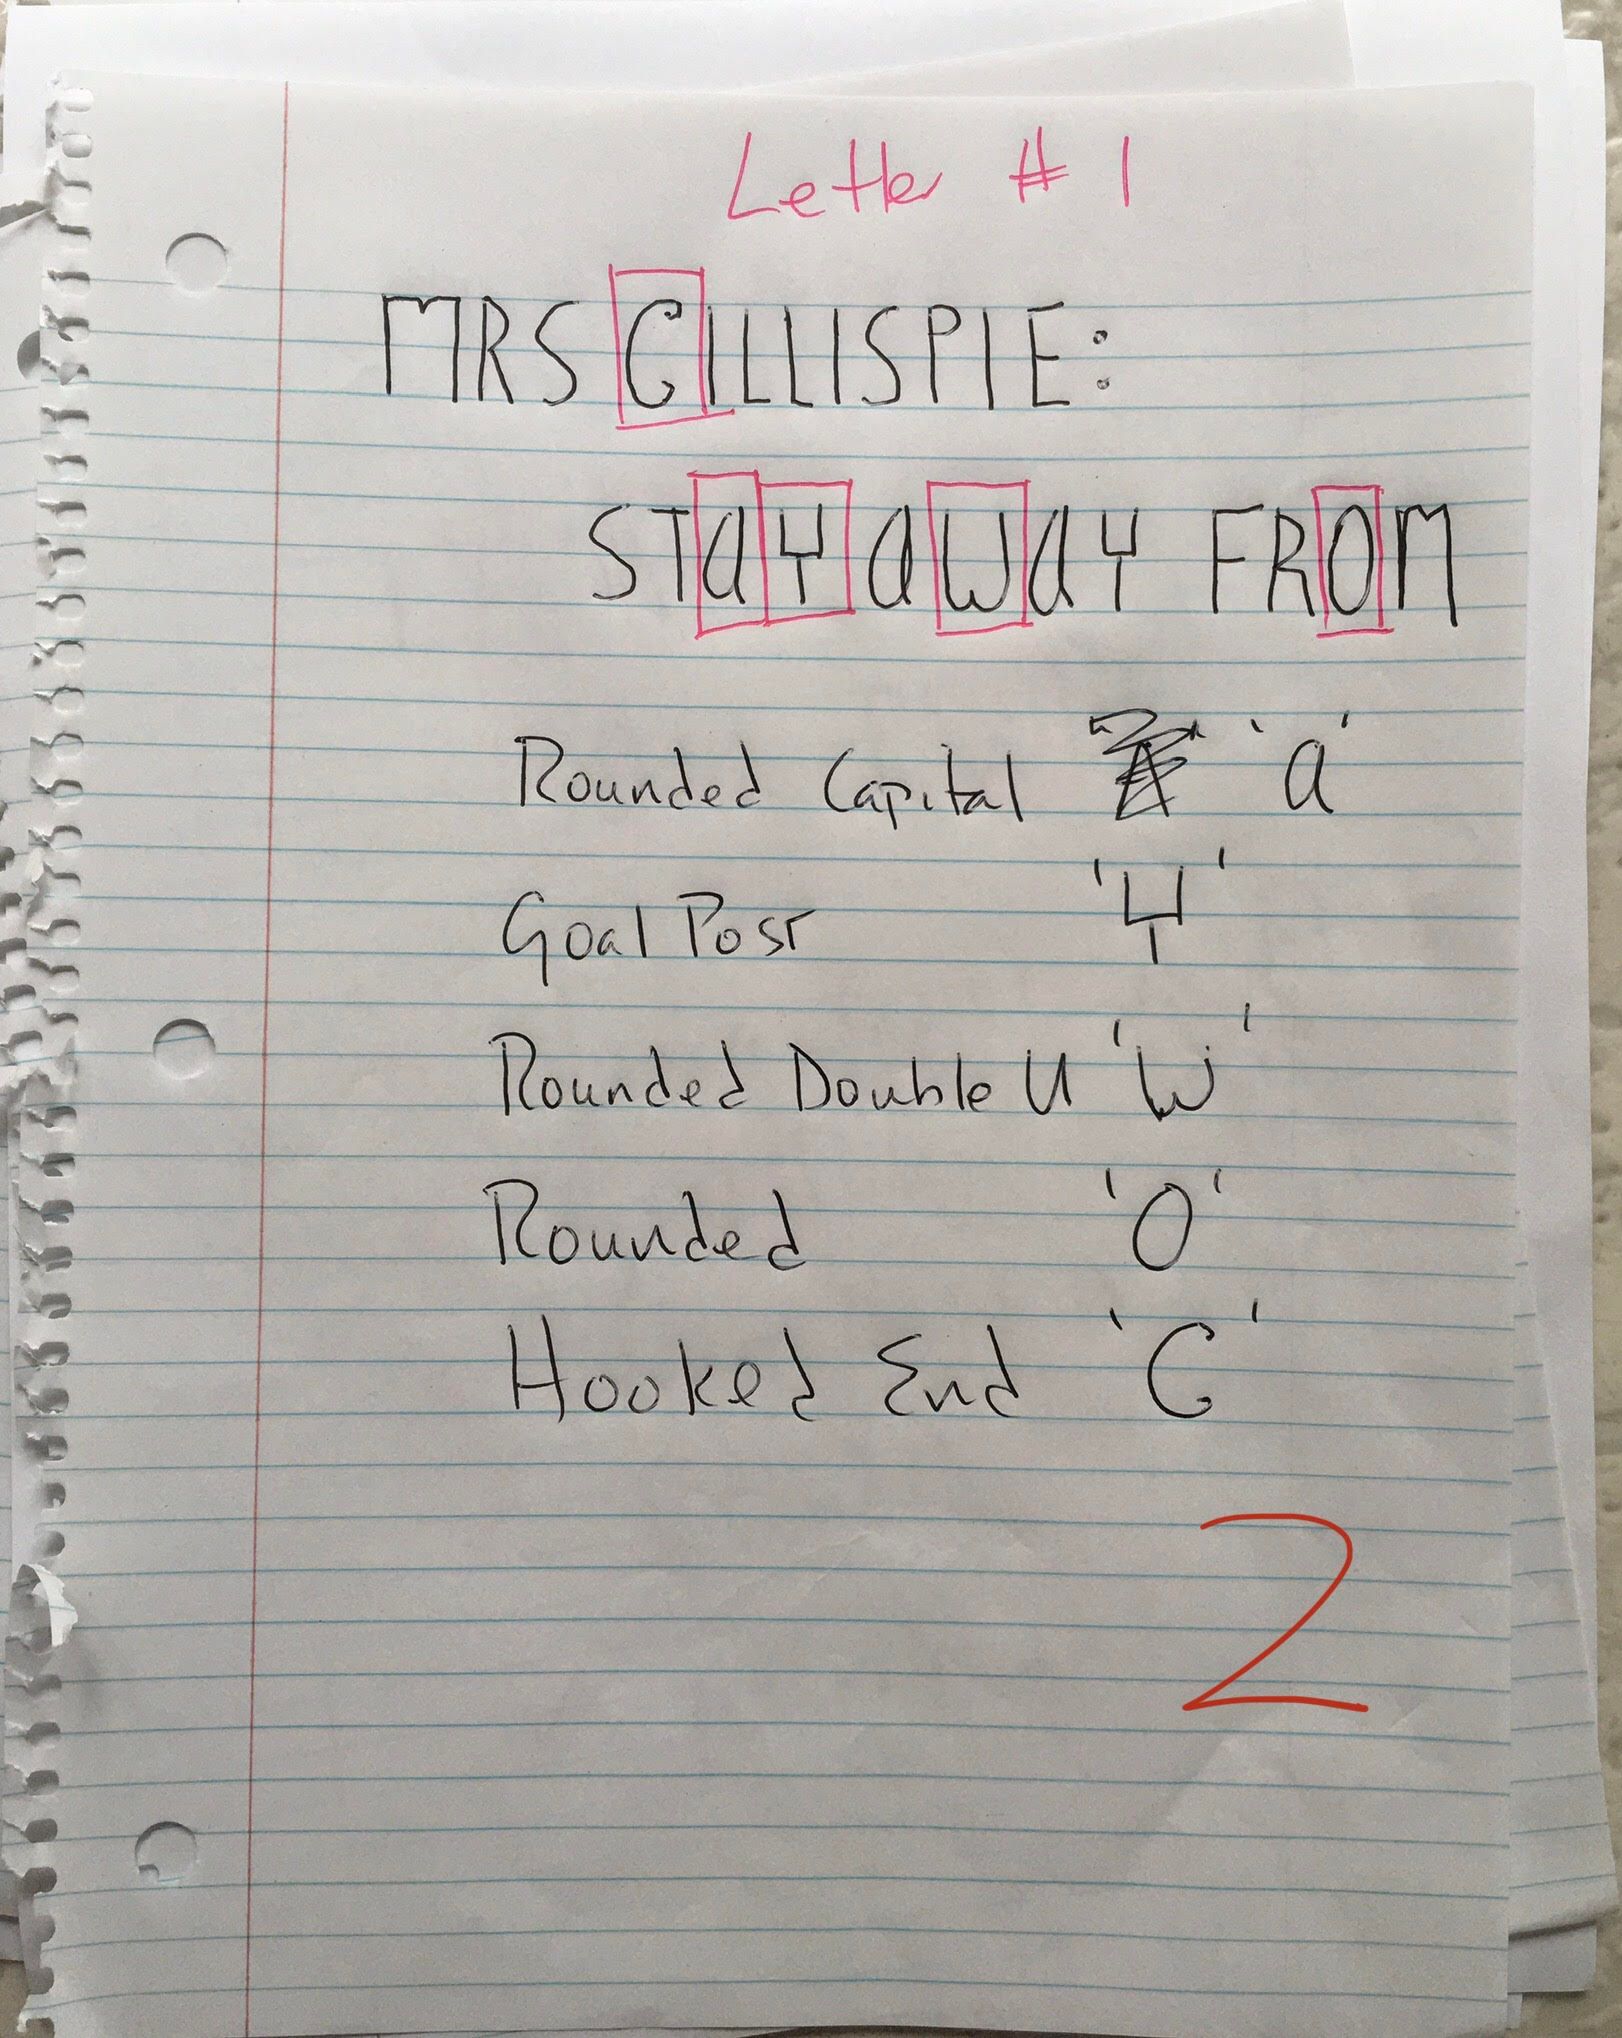 Letter # 1
MRS GILLISPIE:
STAY AWAY FROM
Rounded Capital 'a'
Goal Post 'Y'
Rounded Double U 'W'
Rounded 'O'
Hooked End 'G'
2